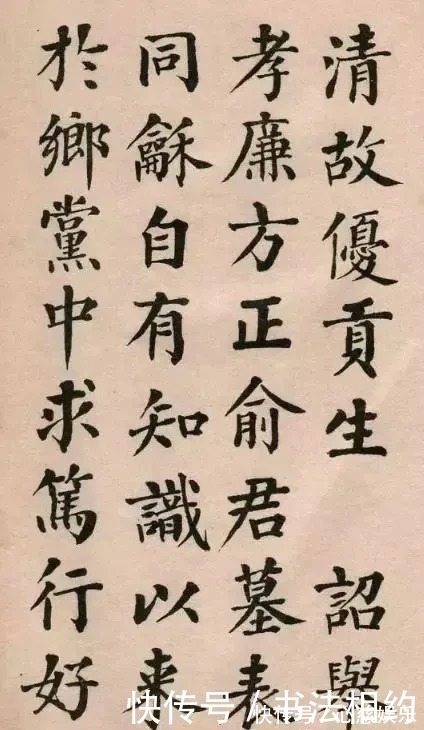 清故優貢生 詔舉
孝廉方正俞君墓表
同龢自有知識以来
於鄉黨中求篤行好
快传号/书法相约
快传号/心慈娱乐